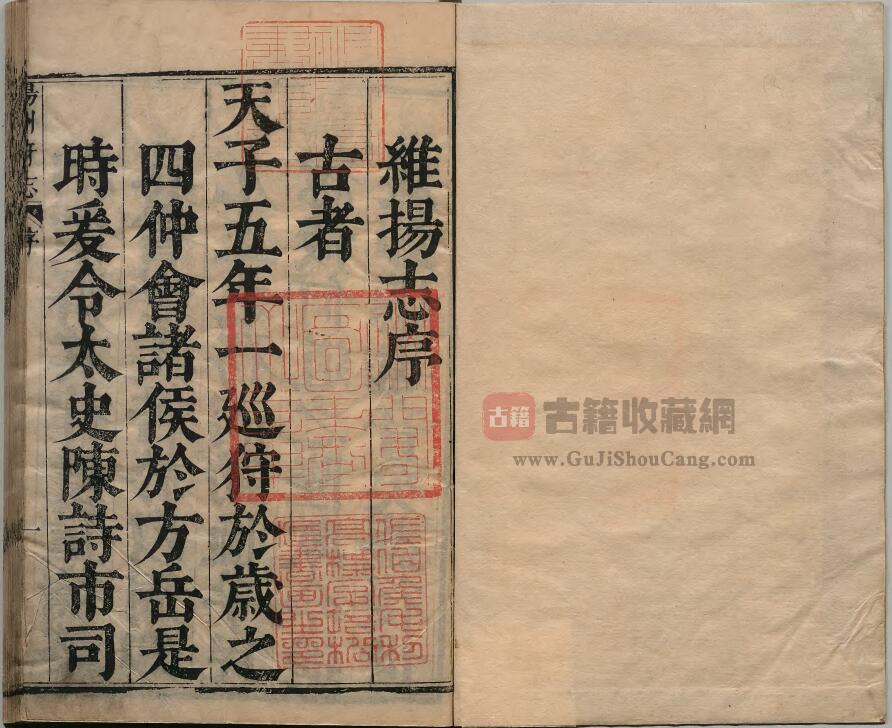 維揚志序
古者
天子五年一廵狩於歳之
四仲會諸侯於方岳是
時爰令太史陳詩市司
揚州府志
序
一
古籍
古籍收藏網
www.GuJiShouCang.com